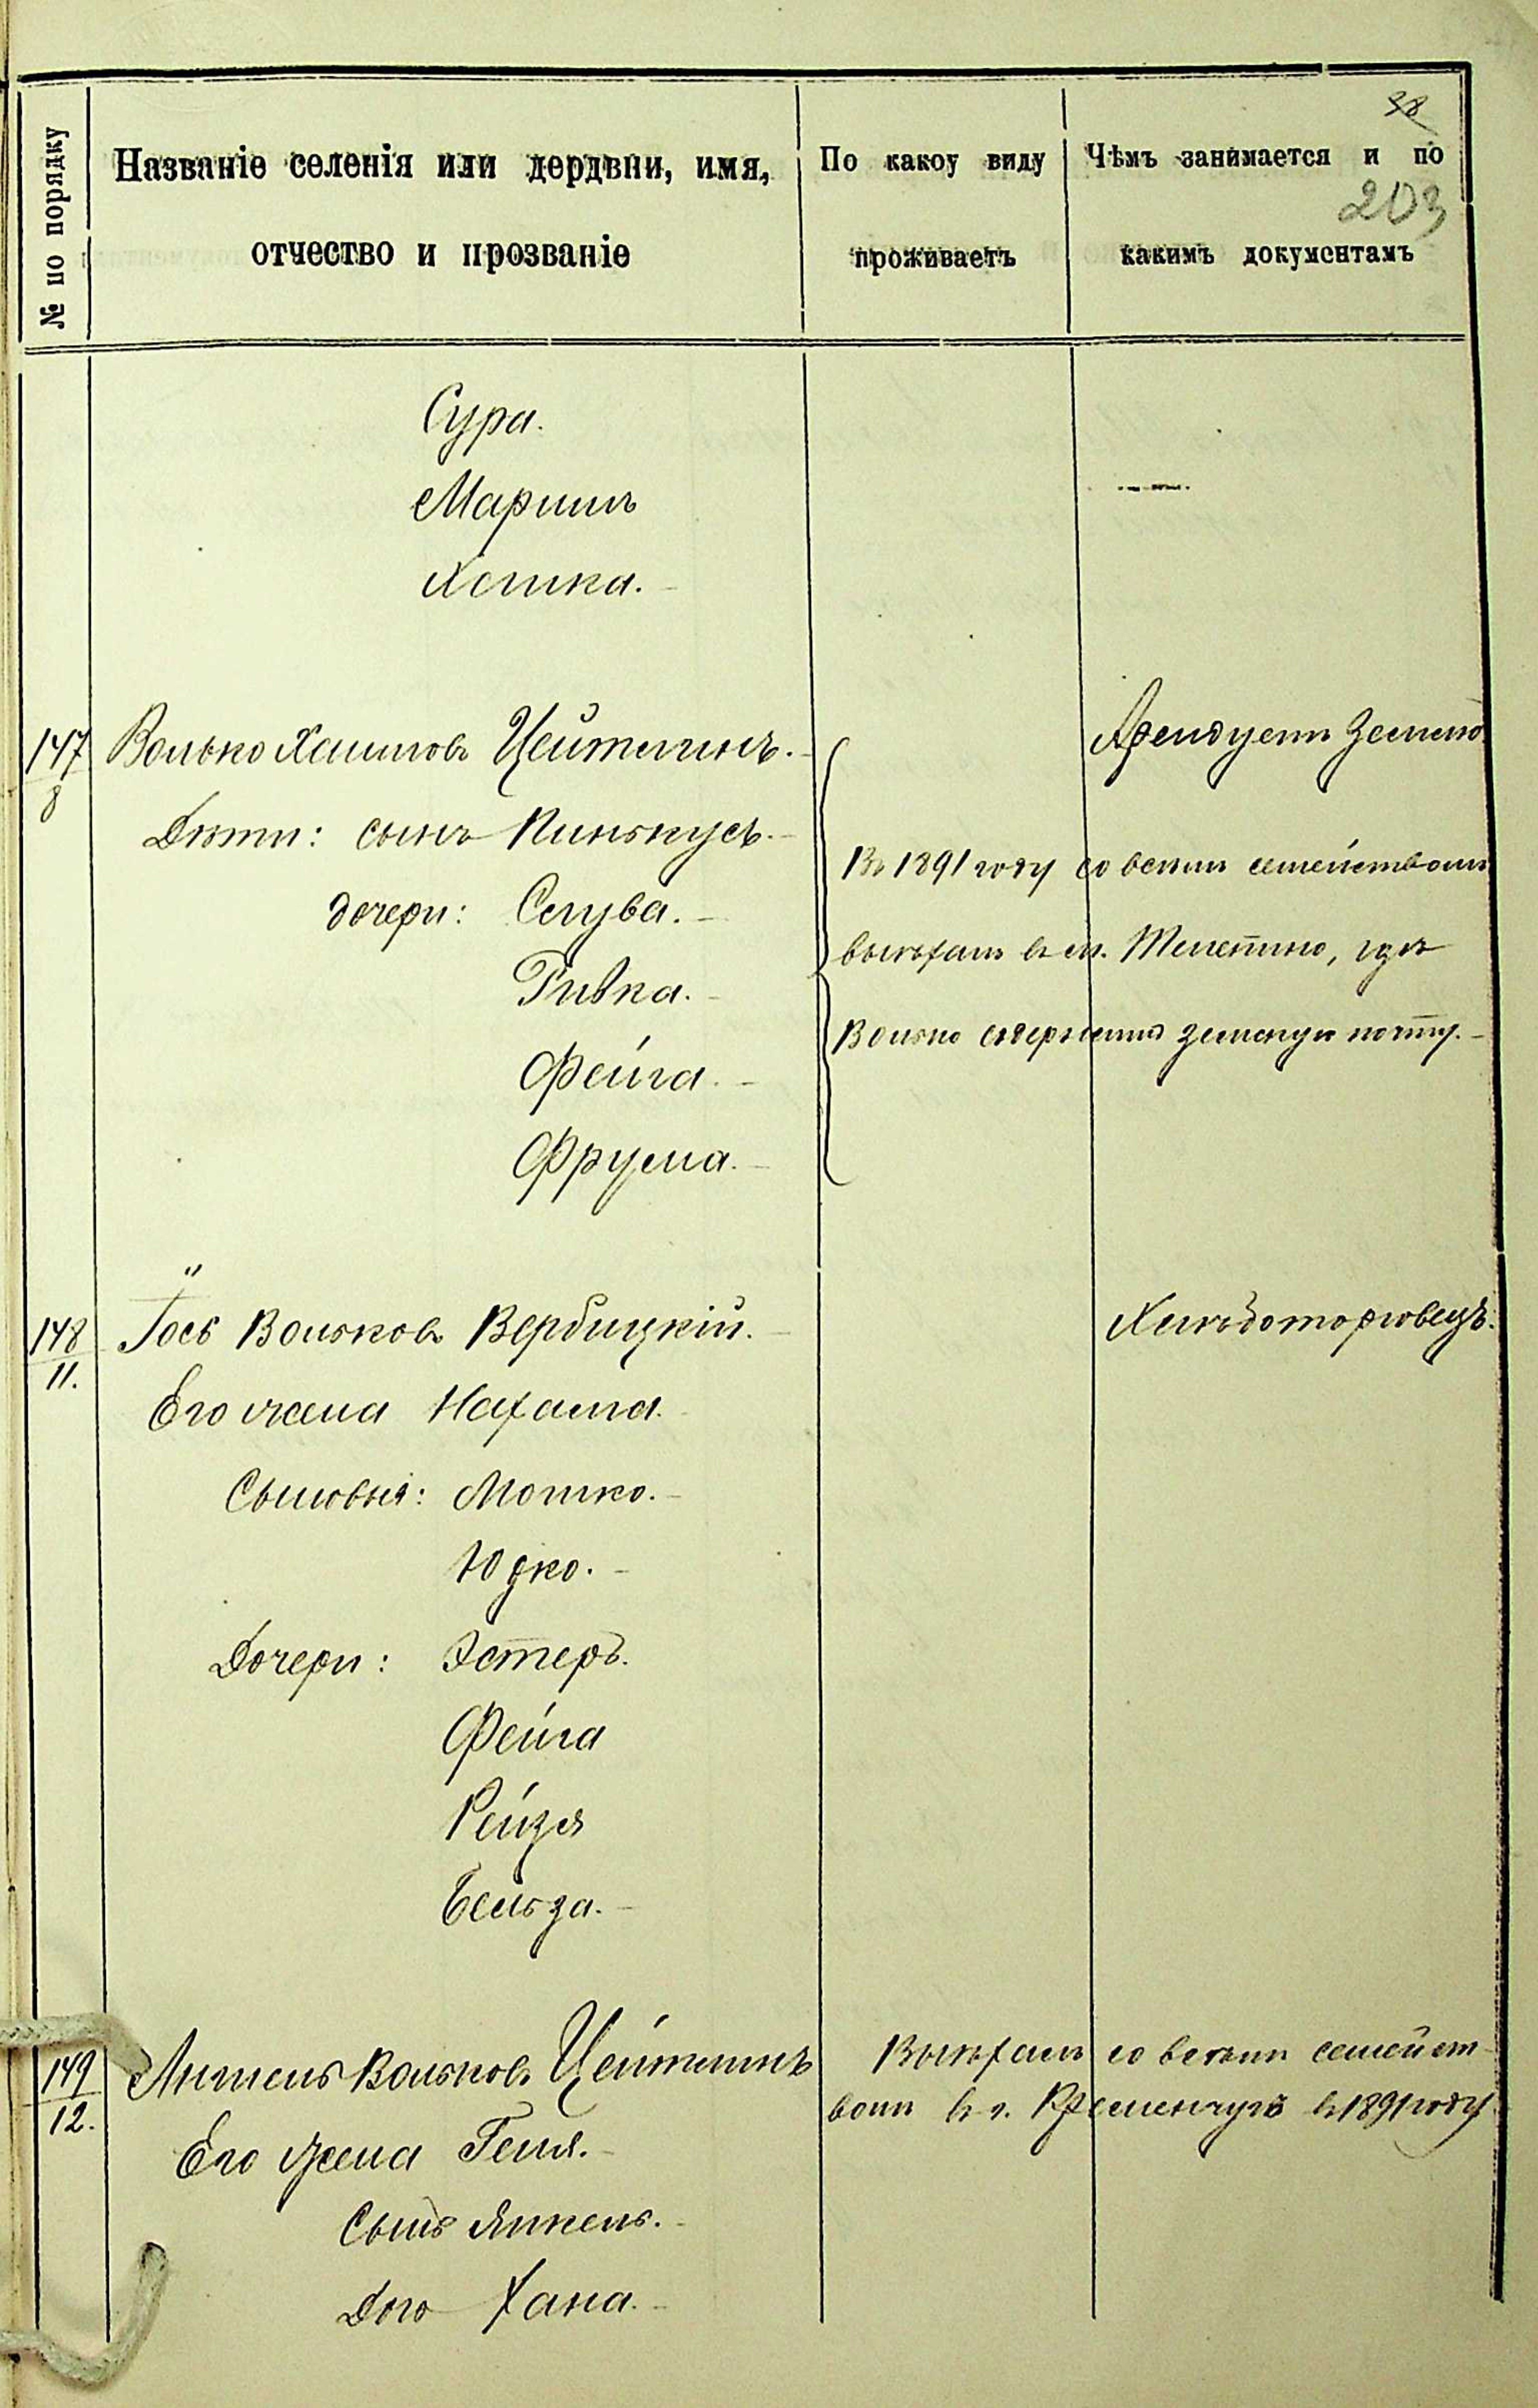 38
203
№ по порядку
Названіе селенія или дердвни, имя,
отчество и прозваніе
По какоу виду
проживаетъ
Чѣмъ занимается и по
какимъ документамъ
Сура.
Маріимъ
147
8
Волько Хаимовъ Цейтлинъ.
Арендуетъ землю
Дѣти: сынъ Пинькусъ.
дочери: Слува.
Ривка.
Фейга.
Фрума.
Въ 1891 году со всѣмъ семействомъ
выѣхалъ въ м. Телепино, гдѣ
Волько содержитъ земскую почту.
148
11.
Іосъ Вольковъ Вербицкій.
Хлѣботорговецъ.
Его жена Нахама.
Сыновья: Мошко.
Юдко.
Дочери: Эстеръ.
Фейга
Рейзя
Бейза.
149
12.
Аншель Вольковъ Цейтлинъ
Его жена Геня.
Сынъ Янкель.
Дочь Хана.
Выѣхалъ со всѣмъ семейст-
вомъ въ г. Кременчугъ въ 1891 году